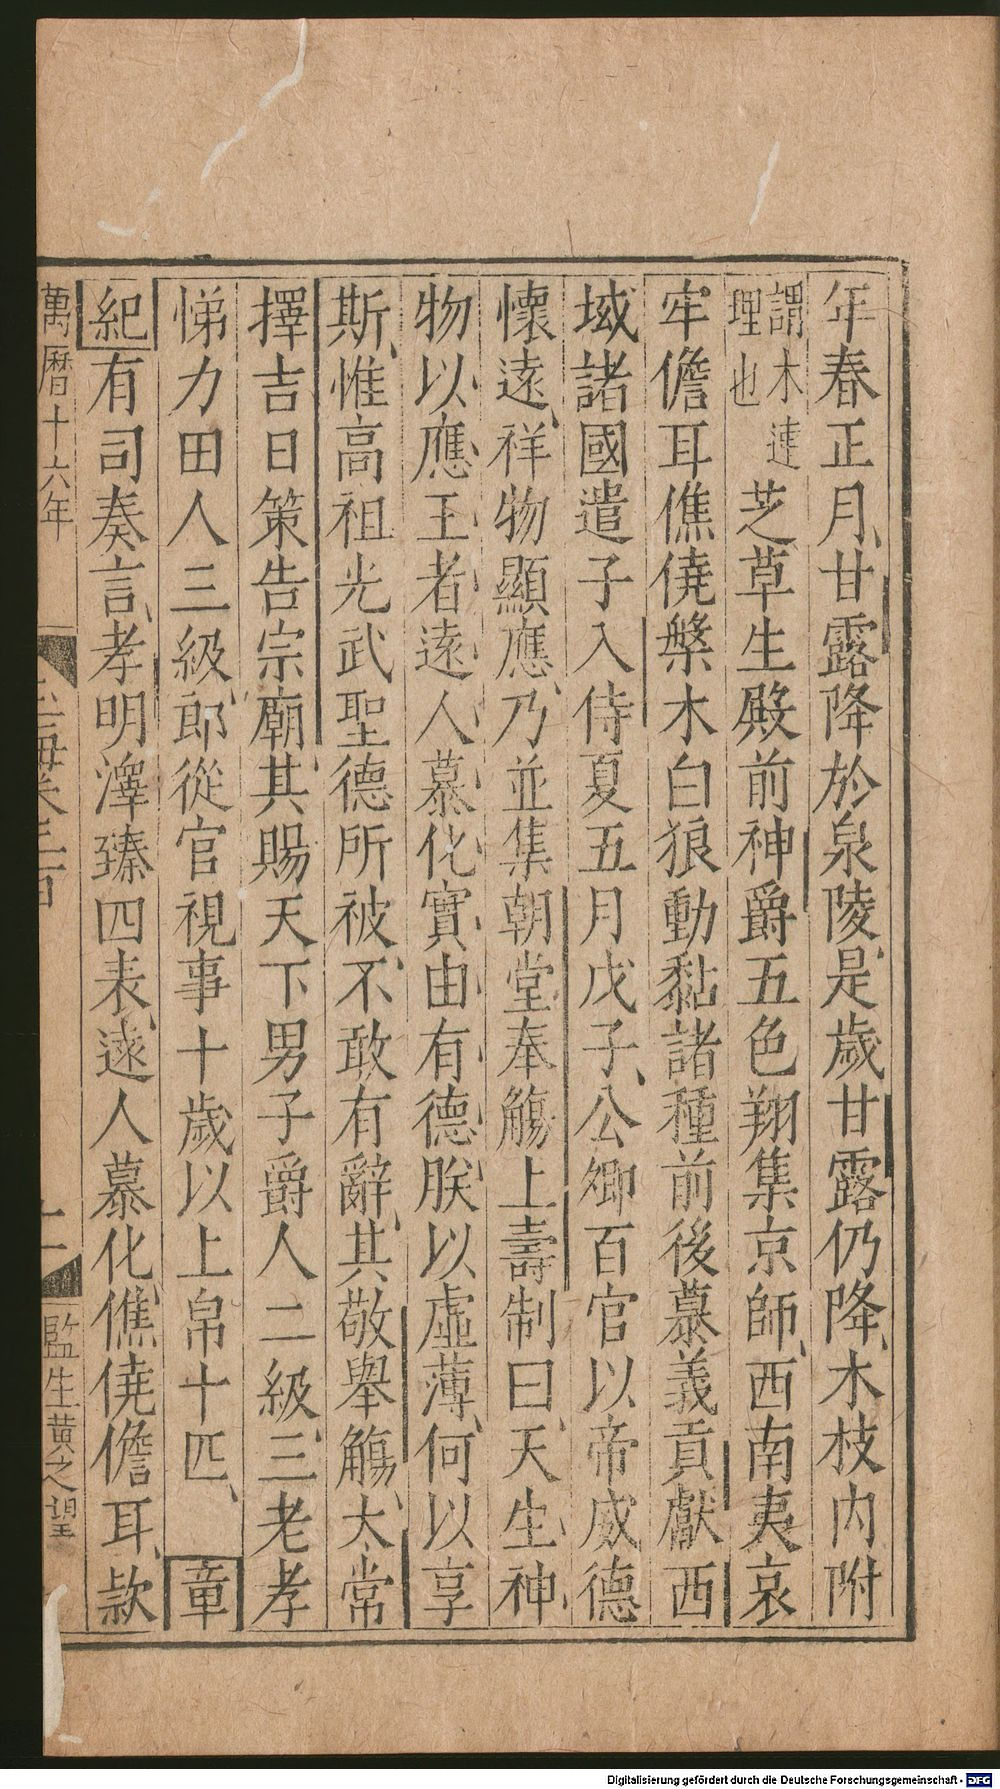 年春正月甘露降於泉陵是歲甘露仍降木枝内附
謂木連理也芝草生殿前神爵五色翔集京師西南夷哀
牢儋耳僬僥槃木白狼動黏諸種前後慕義貢獻西
域諸國遣子入侍夏五月戊子公卿百官以帝威德
懷遠祥物顯應乃並集朝堂奉觴上壽制曰天生神
物以應王者遠人慕化實由有德朕以虛薄何以享
斯惟高祖光武聖德所被不敢有辭其敬舉觴太常
擇吉日策告宗廟其賜天下男子爵人二級三老孝
悌力田人三級郎從官視事十歲以上帛十匹章
紀有司奏言孝明澤臻四表遠人慕化僬僥儋耳款
萬曆十六年
監生黃之望
Digitalisierung gefördert durch die Deutsche Forschungsgemeinschaft - DFG